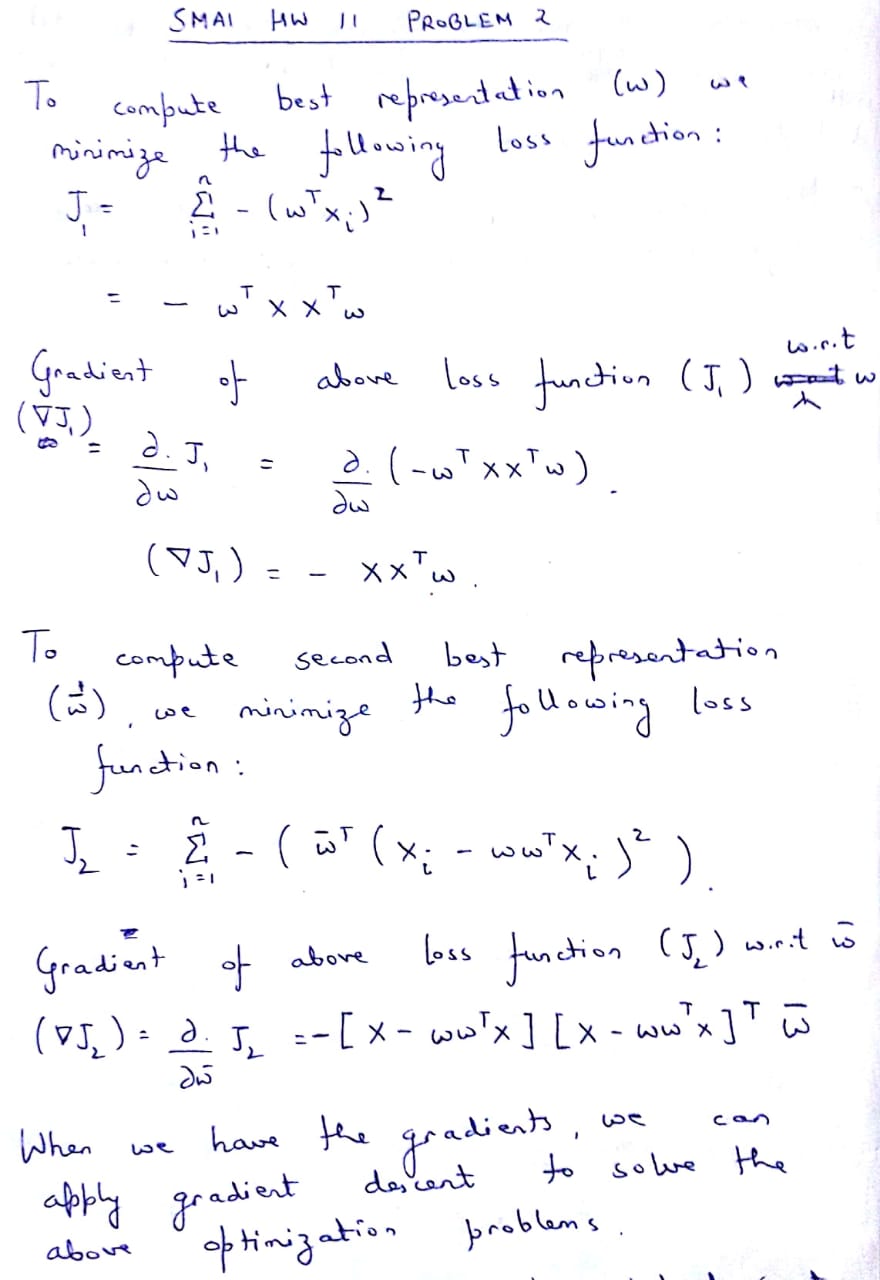 SMAI HW 11 PROBLEM 2
To compute best representation (w) we
minimize the following loss function :
J₁ = Σᵢ₌₁ⁿ - (wᵀxᵢ)²
= - wᵀ X Xᵀ w
Gradient of above loss function (J₁) w.r.t w
(∇J₁) = ∂/∂w . J₁ = ∂/∂w . (-wᵀ X Xᵀ w) .
(∇J₁) = - X Xᵀ w .
To compute second best representation
(w̄), we minimize the following loss
function :
J₂ = Σᵢ₌₁ⁿ - ( w̄ᵀ ( xᵢ - wwᵀxᵢ )² ) .
Gradient of above loss function (J₂) w.r.t w̄
(∇J₂) = ∂/∂w̄ . J₂ = - [ X - wwᵀX ] [ X - wwᵀX ]ᵀ w̄
When we have the gradients, we can
apply gradient descent to solve the
above optimization problems .